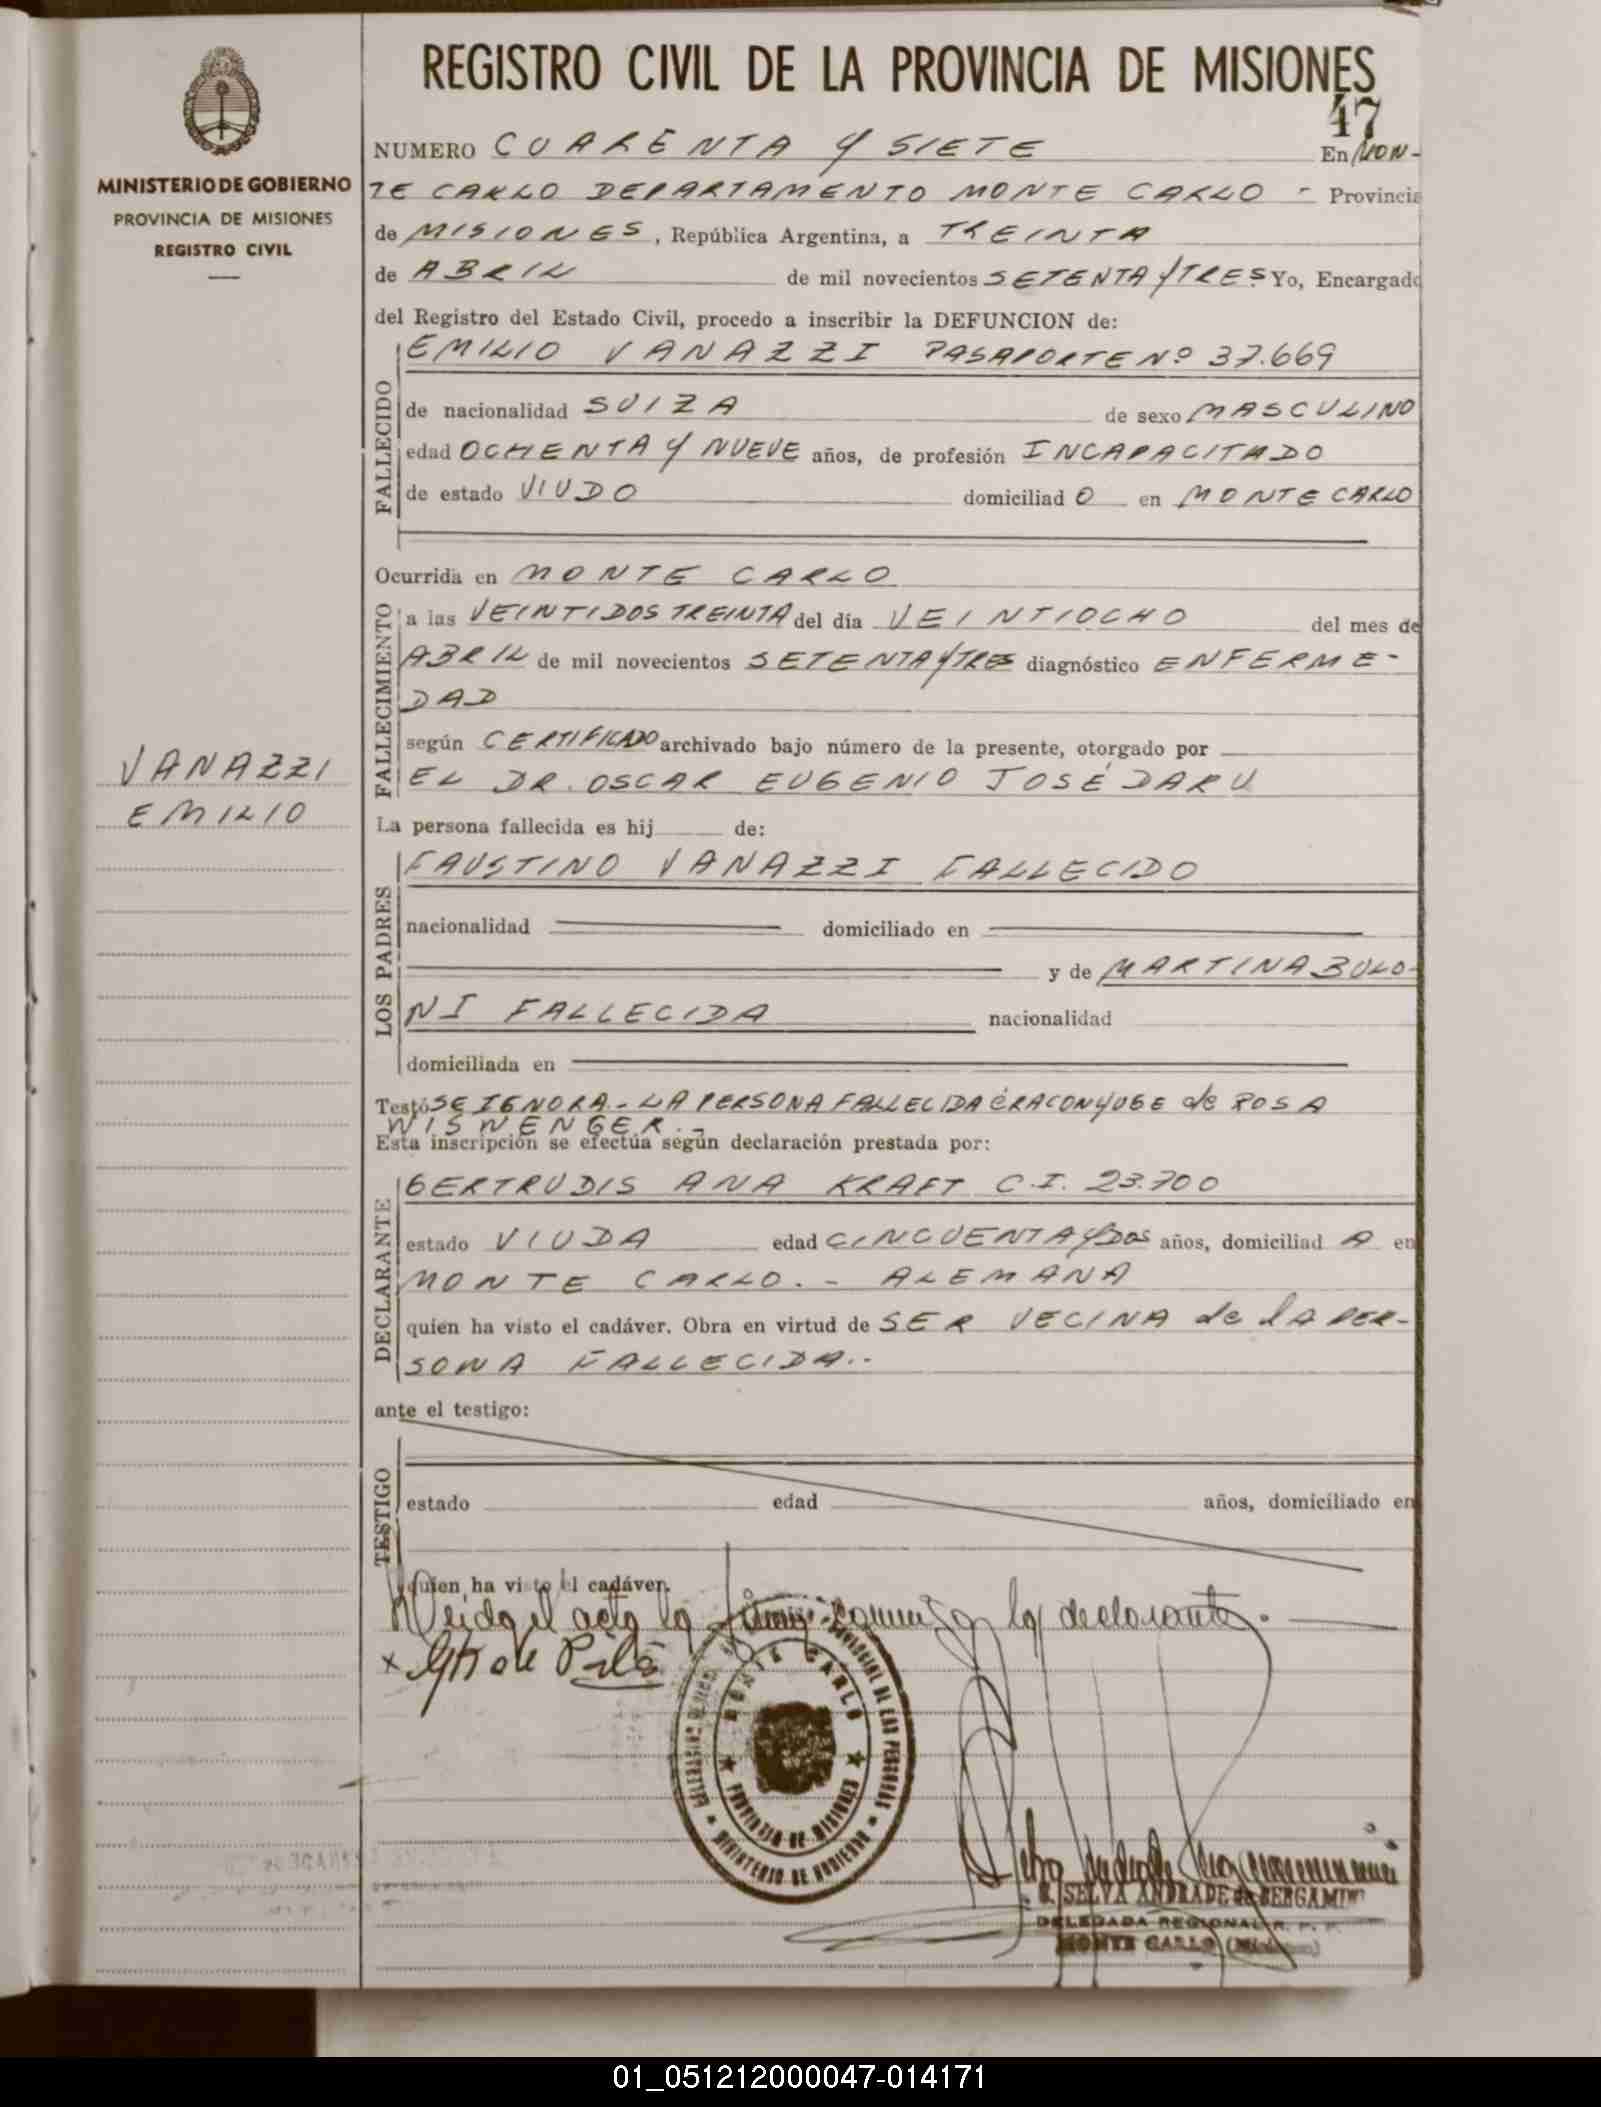 REGISTRO CIVIL DE LA PROVINCIA DE MISIONES
47
MINISTERIO DE GOBIERNO
PROVINCIA DE MISIONES
REGISTRO CIVIL
NUMERO CUARENTA Y SIETE En MON-
TE CARLO DEPARTAMENTO MONTE CARLO - Provincia
de MISIONES, República Argentina, a TREINTA
de ABRIL de mil novecientos SETENTA Y TRES Yo, Encargado
del Registro del Estado Civil, procedo a inscribir la DEFUNCION de:
FALLECIDO
EMILIO VANAZZI PASAPORTE Nº 37.669
de nacionalidad SUIZA de sexo MASCULINO
edad OCHENTA Y NUEVE años, de profesión INCAPACITADO
de estado VIUDO domiciliad O en MONTE CARLO
Ocurrida en MONTE CARLO
FALLECIMIENTO
a las VEINTIDOS TREINTA del día VEINTIOCHO del mes de
ABRIL de mil novecientos SETENTA Y TRES diagnóstico ENFERME-
DAD
según CERTIFICADO archivado bajo número de la presente, otorgado por
EL DR. OSCAR EUGENIO JOSÉ DARU
VANAZZI
EMILIO
La persona fallecida es hij de:
LOS PADRES
FAUSTINO VANAZZI FALLECIDO
nacionalidad domiciliado en
y de MARTINA BOLO-
NI FALLECIDA nacionalidad
domiciliada en
Testó SE IGNORA.- LA PERSONA FALLECIDA ERA CONYUGE de ROSA
WISWENGER.-
Esta inscripción se efectúa según declaración prestada por:
DECLARANTE
GERTRUDIS ANA KRAFT C.I. 23.700
estado VIUDA edad CINCUENTA Y DOS años, domiciliad A en
MONTE CARLO.- ALEMANA
quien ha visto el cadáver. Obra en virtud de SER VECINA de LA PER-
SONA FALLECIDA.-
ante el testigo:
TESTIGO
estado edad años, domiciliado en
quien ha visto el cadáver.
Leida el acta la firma conmigo la declarante.
MONTE CARLO
PROVINCIA DE MISIONES
MINISTERIO DE GOBIERNO
SELVA ANDRADE de BERGAMINI
DELEGADA REGIONAL R. P. P.
MONTE CARLO (Misiones)
01_051212000047-014171